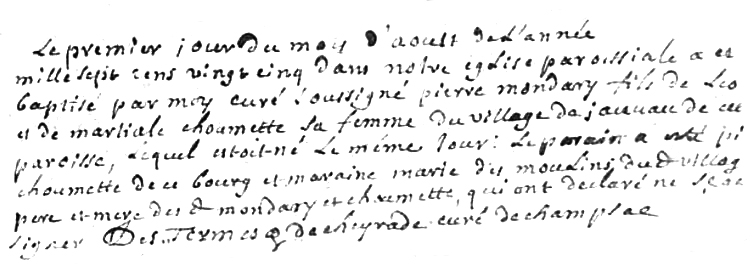 Le premier jour du moy d'aoust de L'année
mille sept cens vingt cinq dans nostre église paroissiale a et
baptisé par moy curé soussigné pierre mondary fils de Leo
et de martiale choumette sa femme du village de de cet
paroisse, Lequel estoit né Le même Jour: Le parain a esté pi
choumette de ce bourg et maraine marie des moulins du dt villag
pere et mere des dt mondary et choumette, qui ont declaré ne sçac
signer DesTermes de cheyrade curé de champsac